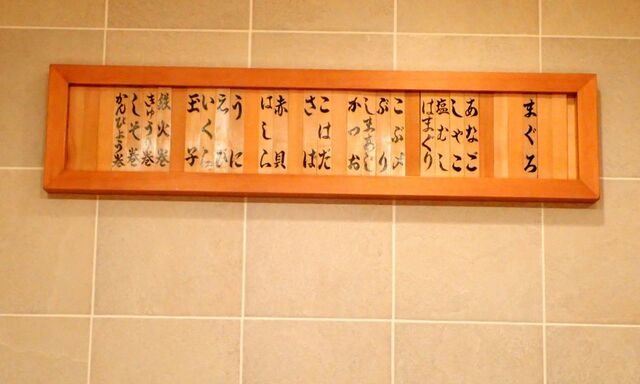 まぐろ
あなご
しゃこ
塩むし
はまぐり
こぶ〆
ぶり
しまあじ
かつお
こはだ
さば
赤貝
はしら
うに
えび
いくら
玉子
鉄火巻
きゅうり巻
しそ巻
かんぴょう巻